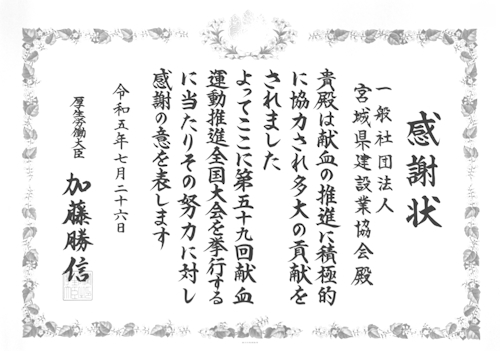 感謝状
一般社団法人
宮城県建設業協会殿
貴殿は献血の推進に積極的
に協力され多大の貢献を
されました
よってここに第五十九回献血
運動推進全国大会を挙行する
に当たりその努力に対し
感謝の意を表します
令和五年七月二十六日
厚生労働大臣
加藤勝信